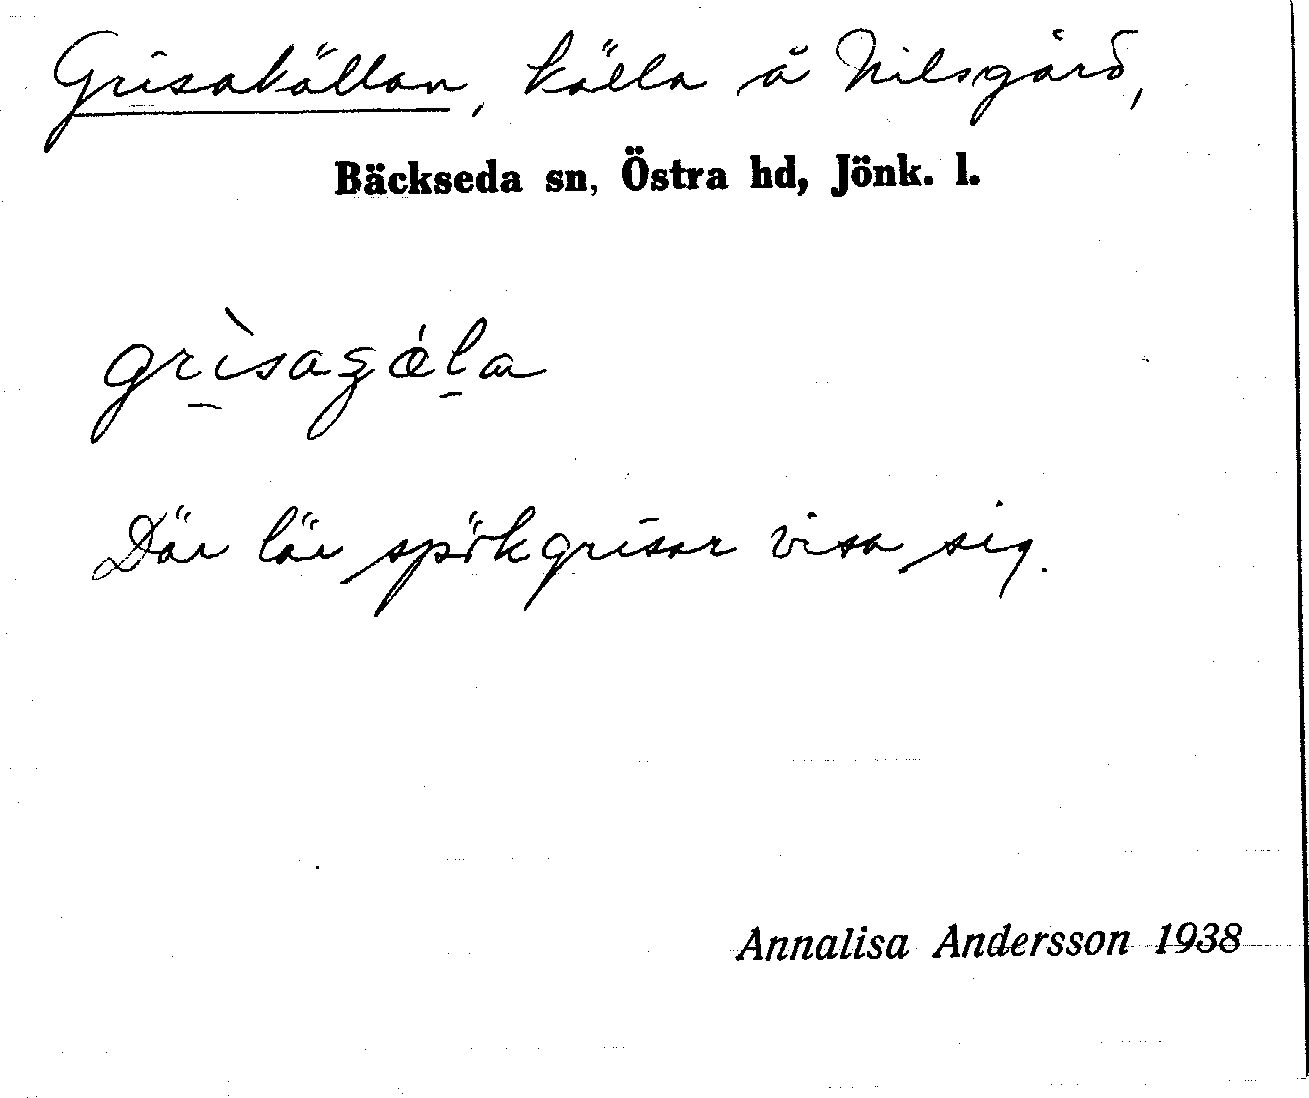 Grisakällan, källa å Nilsgård,
Bäckseda sn, Östra hd, Jönk. l.
Där lär spökgrisar visa sig.
Annalisa Andersson 1938